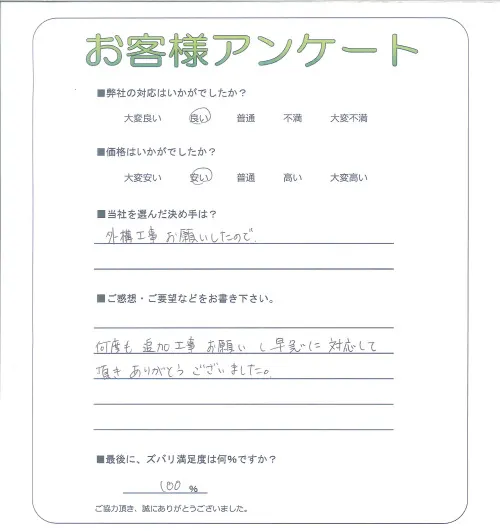 お客様アンケート
■弊社の対応はいかがでしたか？
大変良い 良い 普通 不満 大変不満
■価格はいかがでしたか？
大変安い 安い 普通 高い 大変高い
■当社を選んだ決め手は？
外構工事 お願いしたので.
■ご感想・ご要望などをお書き下さい。
何度も 追加工事 お願い し 早急に 対応して
頂き ありがとう ございました。
■最後に、ズバリ満足度は何％ですか？
100 %
ご協力頂き、誠にありがとうございました。